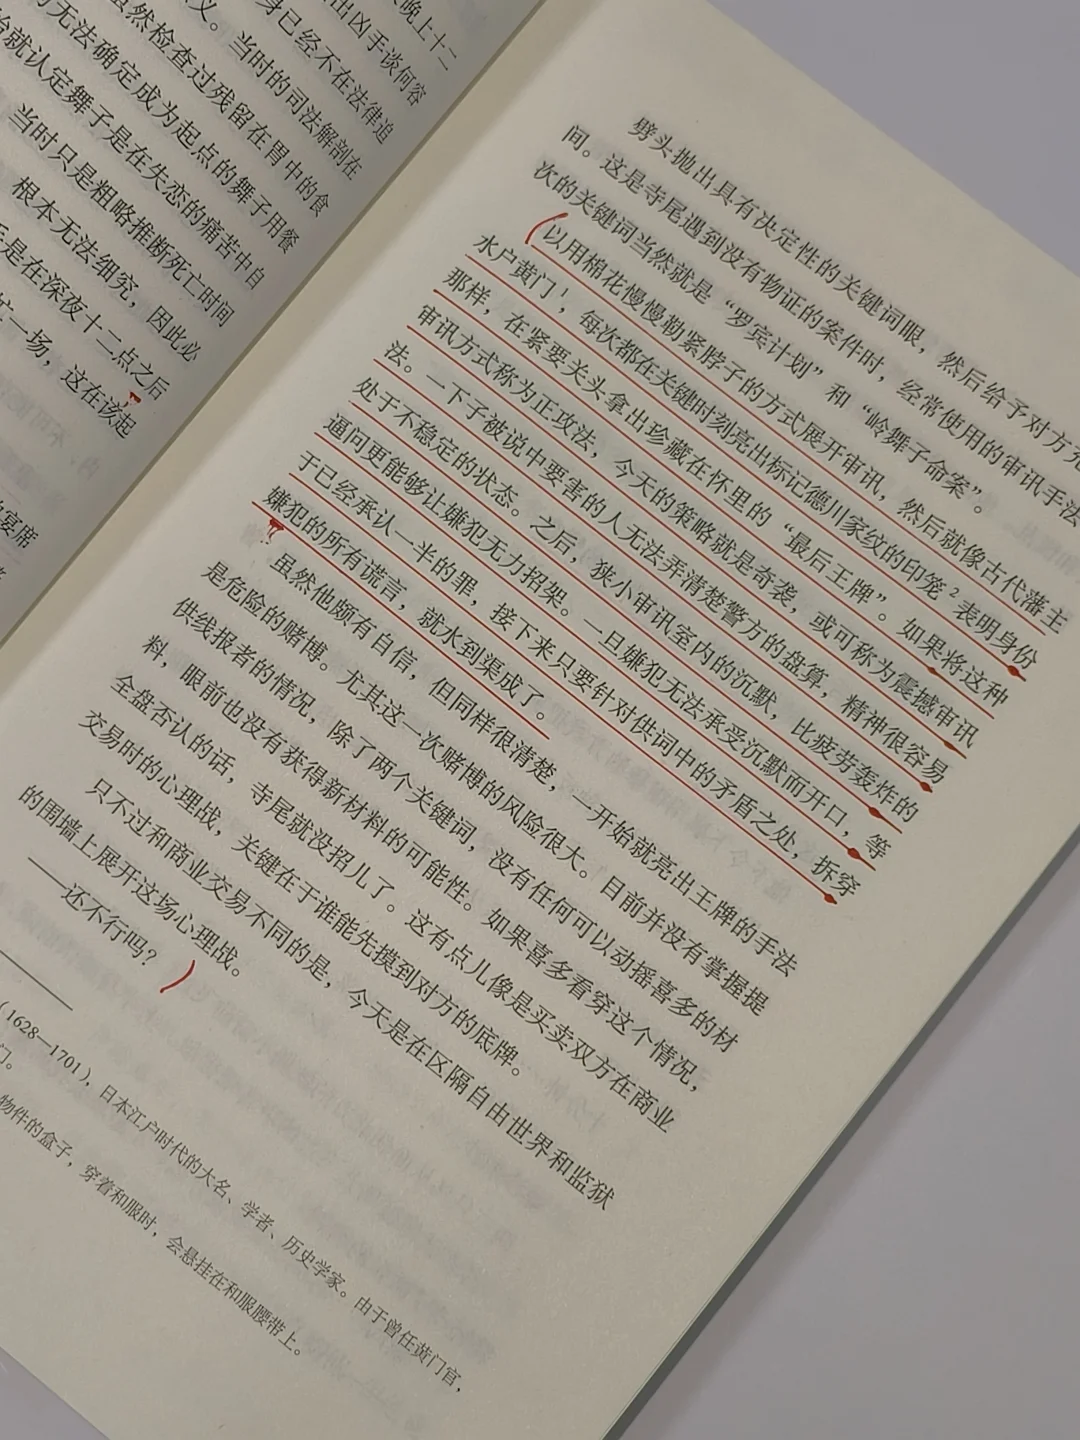 晚上十二
出凶手谈何容
身已经不在法律追
义。当时的司法解剖在
虽然检查过残留在胃中的食
无法确定成为起点的舞子用餐
始就认定舞子是在失恋的痛苦中自
当时只是粗略推断死亡时间
根本无法细究，因此必
是在深夜十二点之后
一场，这在该起
宴席
劈头抛出具有决定性的关键词眼，然后给予对方充
间。这是寺尾遇到没有物证的案件时，经常使用的审讯手法
次的关键词当然就是“罗宾计划”和“岭舞子命案”。
以用棉花慢慢勒紧脖子的方式展开审讯，然后就像古代藩主
水户黄门1，每次都在关键时刻亮出标记德川家纹的印笼2表明身份
那样，在紧要关头拿出珍藏在怀里的“最后王牌”。如果将这种
审讯方式称为正攻法，今天的策略就是奇袭，或可称为震撼审讯
法。一下子被说中要害的人无法弄清楚警方的盘算，精神很容易
处于不稳定的状态。之后，狭小审讯室内的沉默，比疲劳轰炸的
逼问更能够让嫌犯无力招架。一旦嫌犯无法承受沉默而开口，等
于已经承认一半的罪，接下来只要针对供词中的矛盾之处，拆穿
嫌犯的所有谎言，就水到渠成了。
虽然他颇有自信，但同样很清楚，一开始就亮出王牌的手法
是危险的赌博。尤其这一次赌博的风险很大。目前并没有掌握提
供线报者的情况，除了两个关键词，没有任何可以动摇喜多的材
料，眼前也没有获得新材料的可能性。如果喜多看穿这个情况，
全盘否认的话，寺尾就没招儿了。这有点儿像是买卖双方在商业
交易时的心理战，关键在于谁能先摸到对方的底牌。
只不过和商业交易不同的是，今天是在区隔自由世界和监狱
的围墙上展开这场心理战。
——还不行吗？
（1628—1701），日本江户时代的大名、学者、历史学家。由于曾任黄门官，
门。
物件的盒子，穿着和服时，会悬挂在和服腰带上。